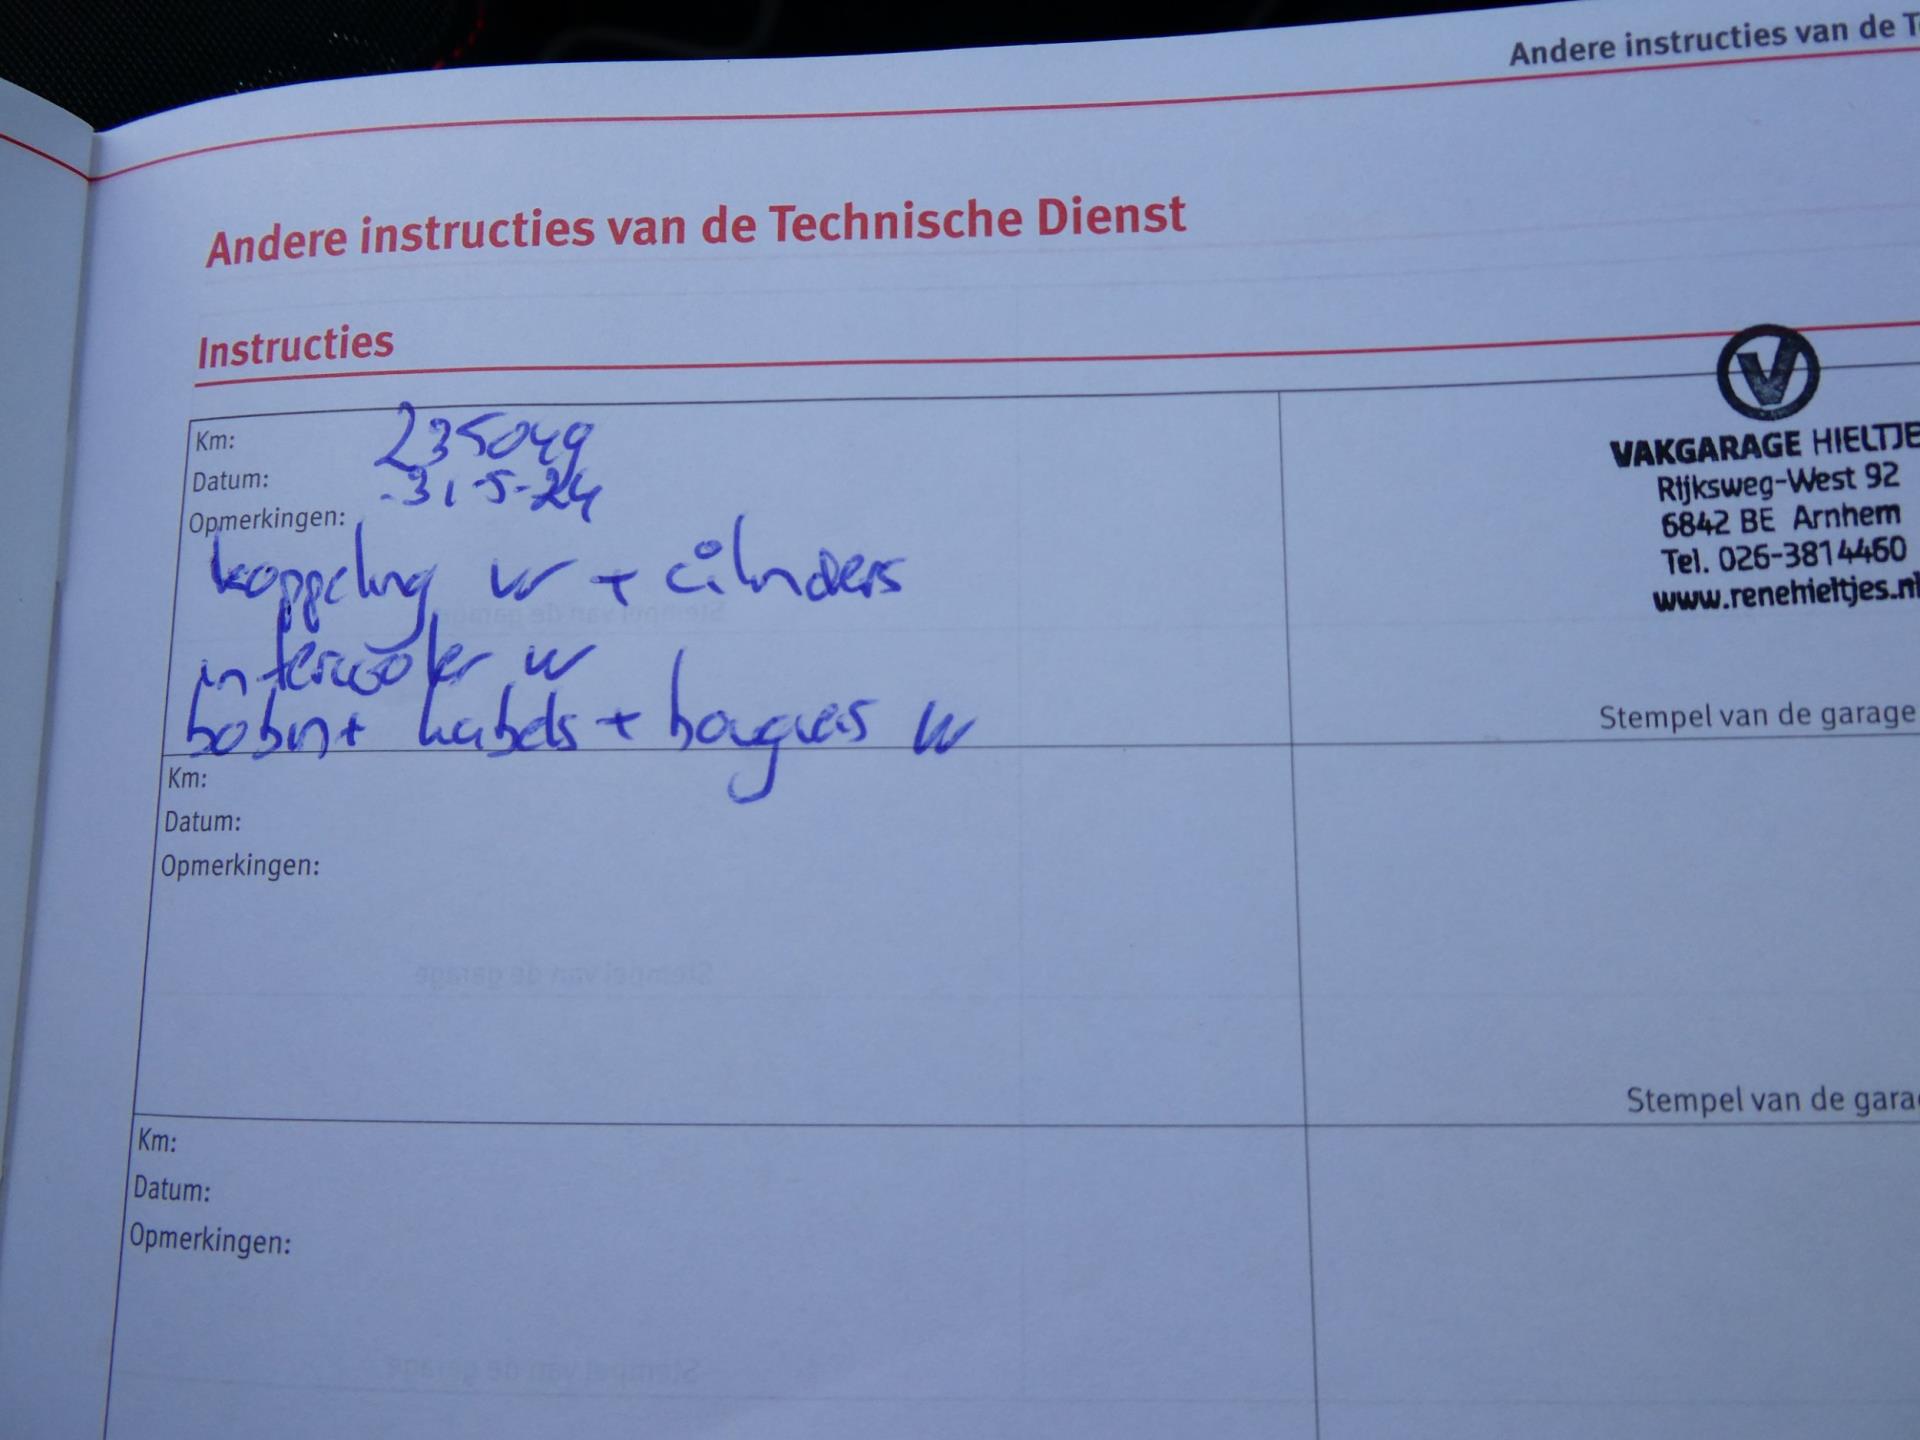 Andere instructies van de T
Andere instructies van de Technische Dienst
Instructies
Km: 235049
Datum: 31-5-24
Opmerkingen:
koppeling w + cilinders
intercooler w
bobin + kabels + bougies w
VAKGARAGE HIELTJE
Rijksweg-West 92
6842 BE Arnhem
Tel. 026-3814460
www.renehieltjes.nl
Stempel van de garage
Km:
Datum:
Opmerkingen:
Stempel van de gara
Km:
Datum:
Opmerkingen: